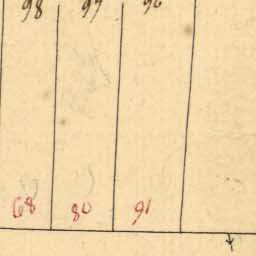 98 97 96
68 80 91